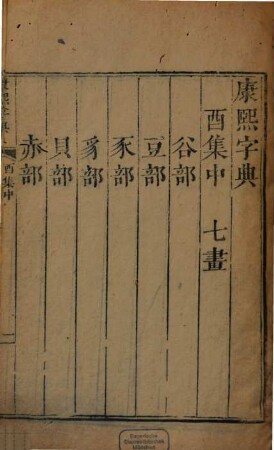 康熙字典
酉集中 七畫
谷部
豆部
豕部
豸部
貝部
赤部
康熙字典
酉集中